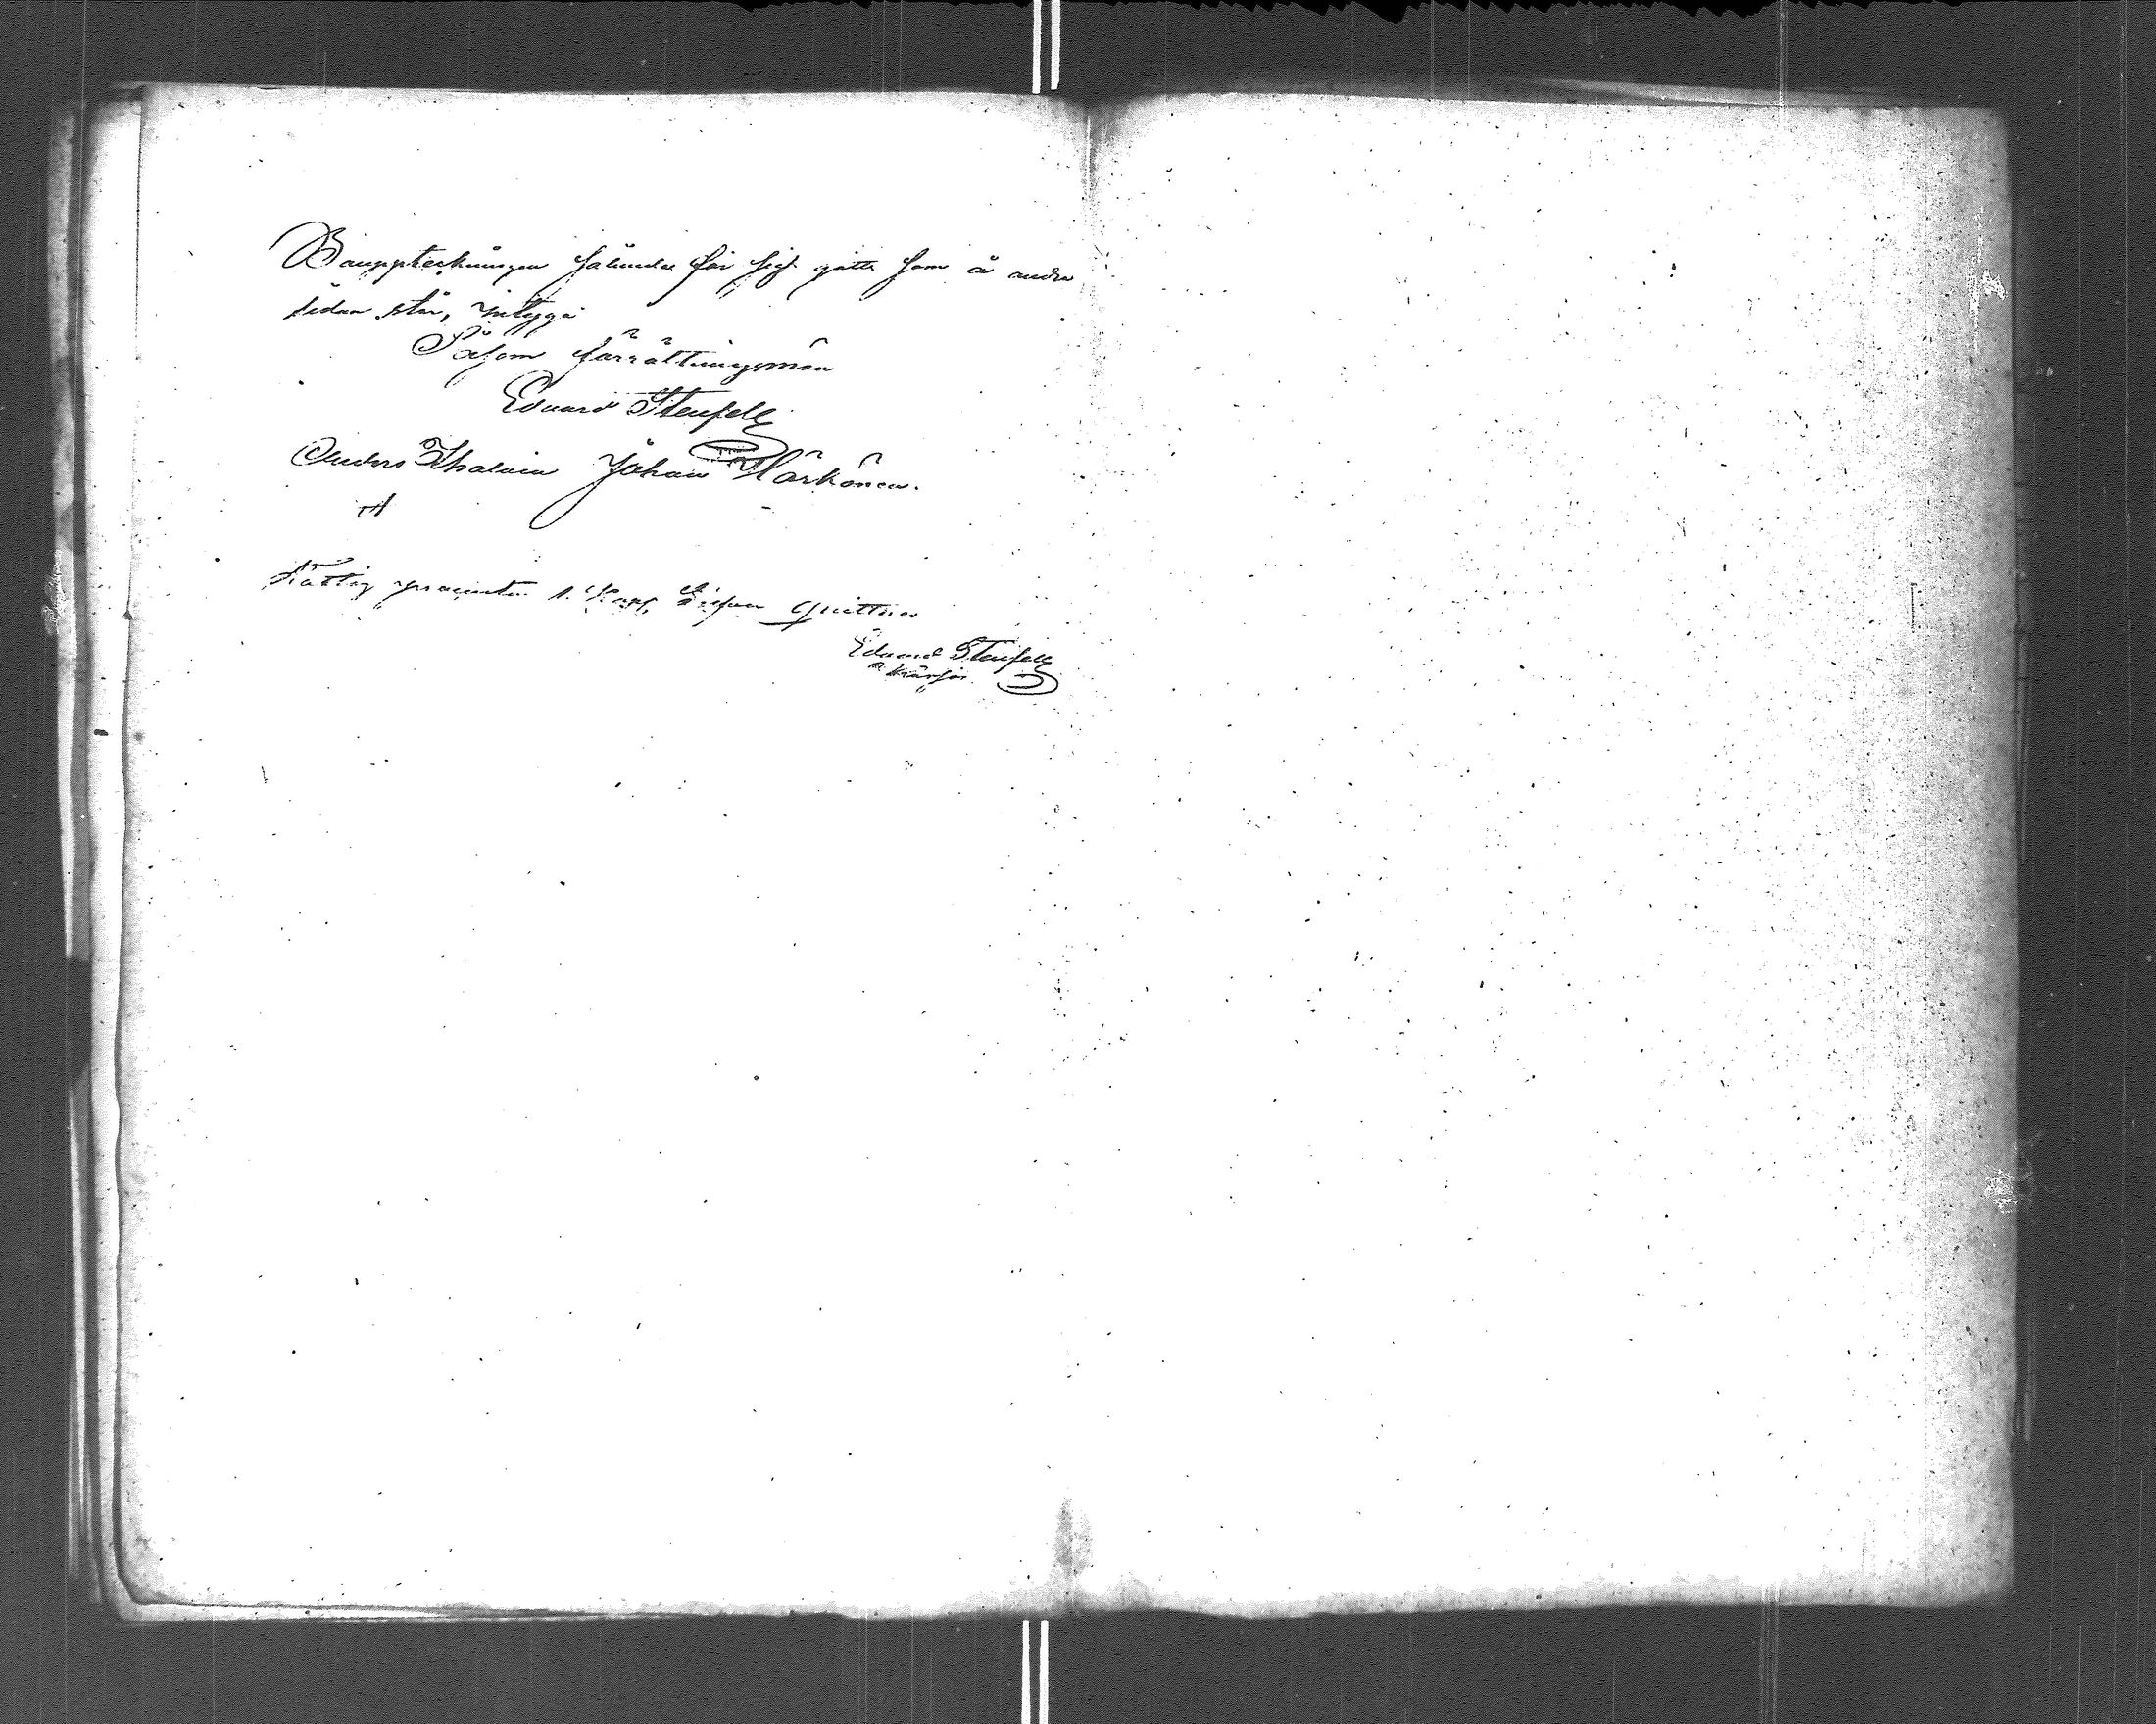 Bouppteckningen sålunda för sig gått som å andra
sidan står, intyga
Såsom förrättningsmän
Eduard Stenfelt
Anders Ihalain Johan Härkönen.
Fattig procenten 1. Kapp Råg qvitteras
Eduard Stenfelt